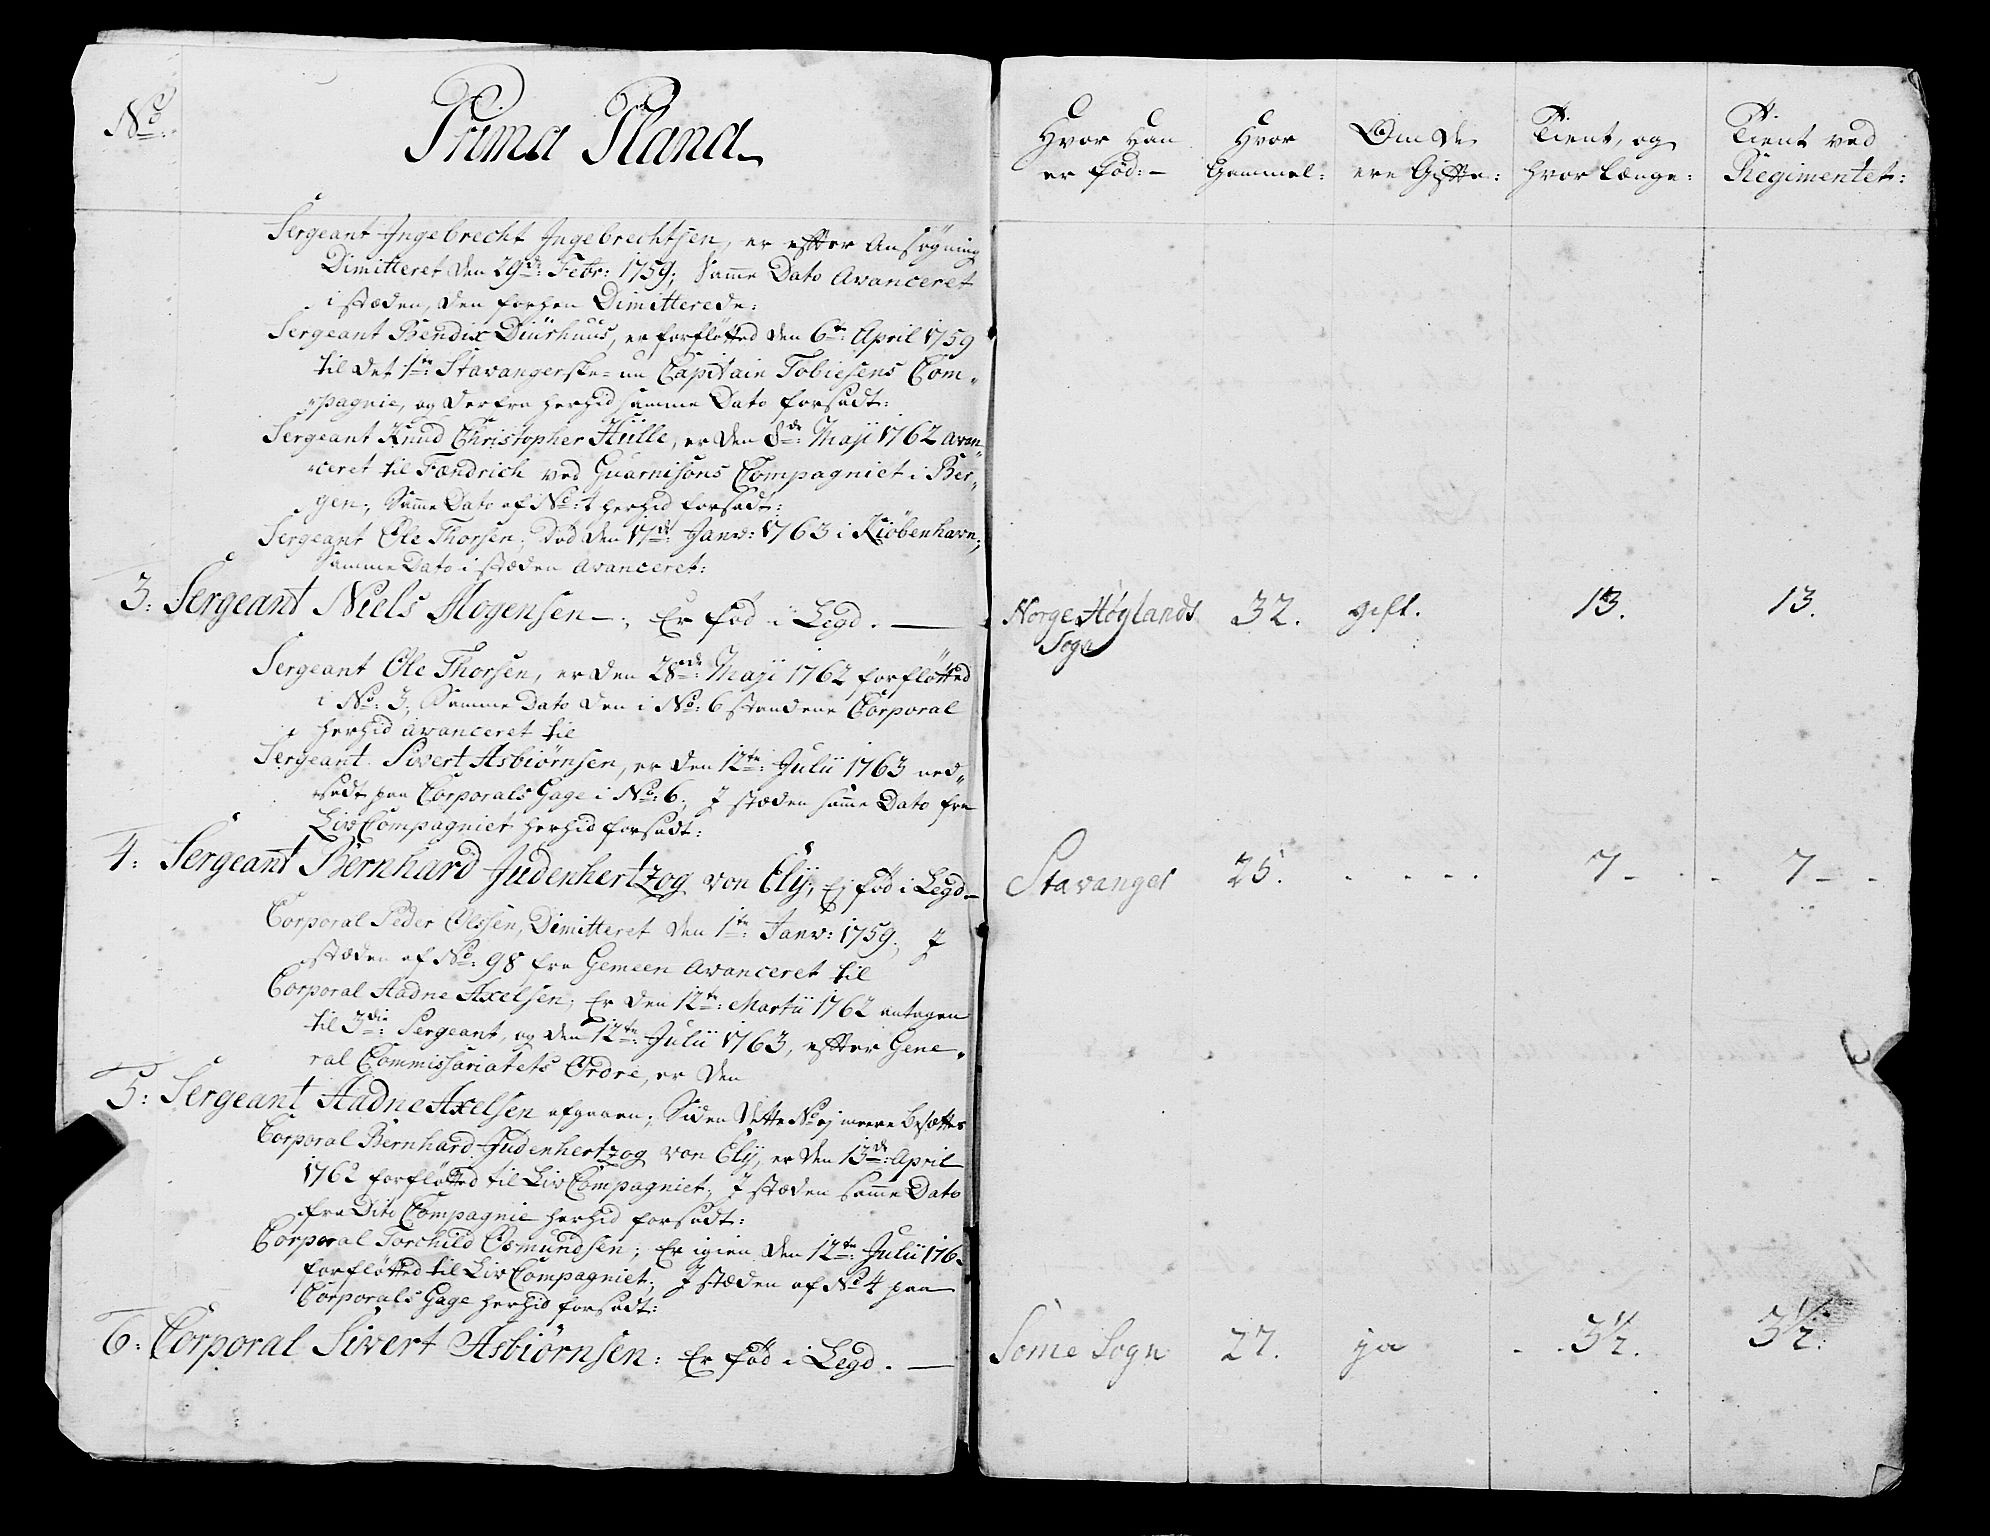 No:
Prima Plana
Sergeant Ingebrecht Ingebrechtsen, er efter Ansøgning
Dimitteret den 29de: Febr: 1759; Samme Dato Avanceret
i stæden, den forhen Dimitterede:
Sergeant Bendix Diurhuus, er forfløtted den 6te: April 1759
til det 1te: Stavangerske Capitain Tobiesens Com„
„pagnie, og derfra herhid samme Dato forsadt:
Sergeant Knud Christopher Hülle, er den 8de: Maji 1762 Avan„
„ceret til Fændrich ved Guarnisons Compagniet i Ber„
„gen; Samme Dato af No: 4 herhid forsadt:
Sergeant Ole Thorsen; død den 17de: Janv: 1763 i Kiøbenhavn;
Samme Dato i stæden Avanceret:
3: Sergeant Niels Mogensen; Er fød i Legd.
Sergeant Ole Thorsen, er den 28de: Maji 1762 forfløtted
i No: 3; Samme Dato den i No: 6 standene Corporal
herhid avanceret til
Sergeant Sivert Asbiørnsen, er den 12te: Julii 1763 ned„
„sadt paa Corporals Gage i No: 6; I stæden samme Dato fra
Liv Compagniet herhid forsadt:
4: Sergeant Bernhard Judenhertzog von Ely; Ej fød i Legd
Corporal Peder Olssen, Dimitteret den 1te: Janv: 1759; I
stæden af No: 98 fra Gemeen Avanceret til
Corporal Aadne Axelsen; Er den 12te: Martii 1762 antagen
til 3die: Sergeant, og den 12te: Julii 1763, efter Gene„
ral Commissariatets Ordre, er den
5: Sergeant Aadne Axelsen afgaaen; Siden dette No ej meere besættes
Corporal Bernhard Judenhertzog von Ely, er den 13de: April
1762 forfløtted til Liv Compagniet; I stæden samme Dato
fra Dito Compagnie herhid forsadt:
Corporal Torchild Osmundsen; Er igien den 12te: Julii 176
forfløtted til Liv Compagniet; I stæden af No 4 paa
Corporals Gage herhid forsadt:
6: Corporal Sivert Asbiørnsen: Er fød i Legd.
Hvor Han er fød:
Hvor Gammel:
Om de ere Gifte:
Tient, og hvor længe:
Tient ved Regimentet:
Norge Høylands Sogn 32. gift. 13. 13.
Stavanger 25. 7 7
Somme Sogn 27. ja 3 1/2. 3 1/2: